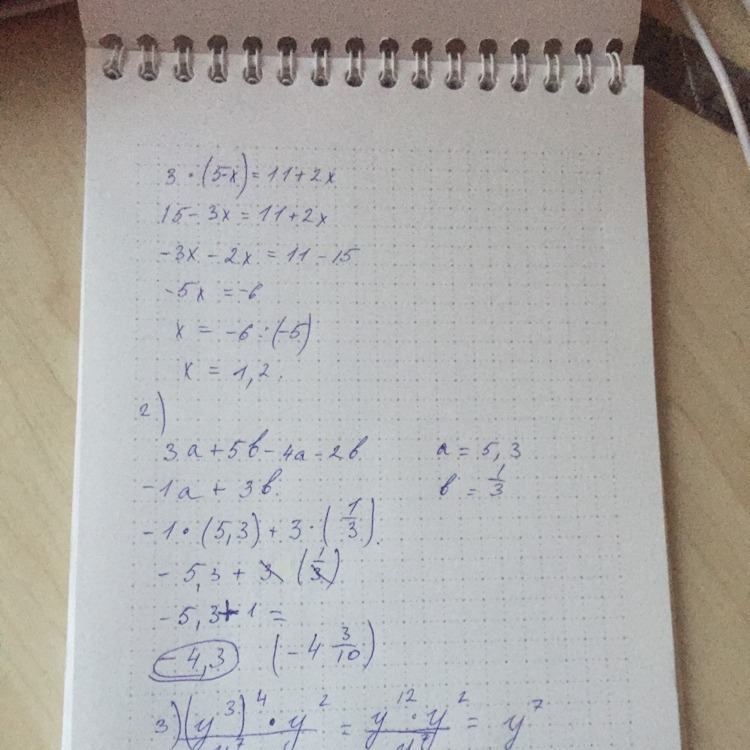 3 · (5-x) = 11+2x
15 - 3x = 11+2x
-3x - 2x = 11-15
-5x = -6
x = -6 : (-5)
x = 1,2.
2)
3a+5b-4a-2b a = 5,3
-1a + 3b b = 1/3
-1 · (5,3) + 3 · (1/3).
- 5,3 + 3 (1/3)
- 5,3 + 1 =
- 4,3 (-4 3/10)
3) (y^3)^4 · y^2 / y^7 = y^12 · y^2 / y^7 = y^7